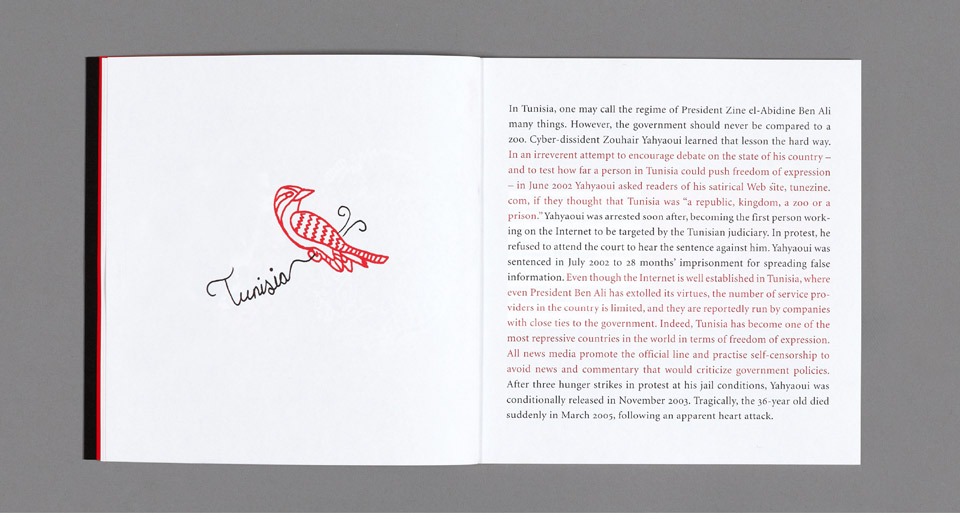 Tunisia
In Tunisia, one may call the regime of President Zine el-Abidine Ben Ali
many things. However, the government should never be compared to a
zoo. Cyber-dissident Zouhair Yahyaoui learned that lesson the hard way.
In an irreverent attempt to encourage debate on the state of his country –
and to test how far a person in Tunisia could push freedom of expression
– in June 2002 Yahyaoui asked readers of his satirical Web site, tunezine.
com, if they thought that Tunisia was “a republic, kingdom, a zoo or a
prison.” Yahyaoui was arrested soon after, becoming the first person work-
ing on the Internet to be targeted by the Tunisian judiciary. In protest, he
refused to attend the court to hear the sentence against him. Yahyaoui was
sentenced in July 2002 to 28 months’ imprisonment for spreading false
information. Even though the Internet is well established in Tunisia, where
even President Ben Ali has extolled its virtues, the number of service pro-
viders in the country is limited, and they are reportedly run by companies
with close ties to the government. Indeed, Tunisia has become one of the
most repressive countries in the world in terms of freedom of expression.
All news media promote the official line and practise self-censorship to
avoid news and commentary that would criticize government policies.
After three hunger strikes in protest at his jail conditions, Yahyaoui was
conditionally released in November 2003. Tragically, the 36-year old died
suddenly in March 2005, following an apparent heart attack.